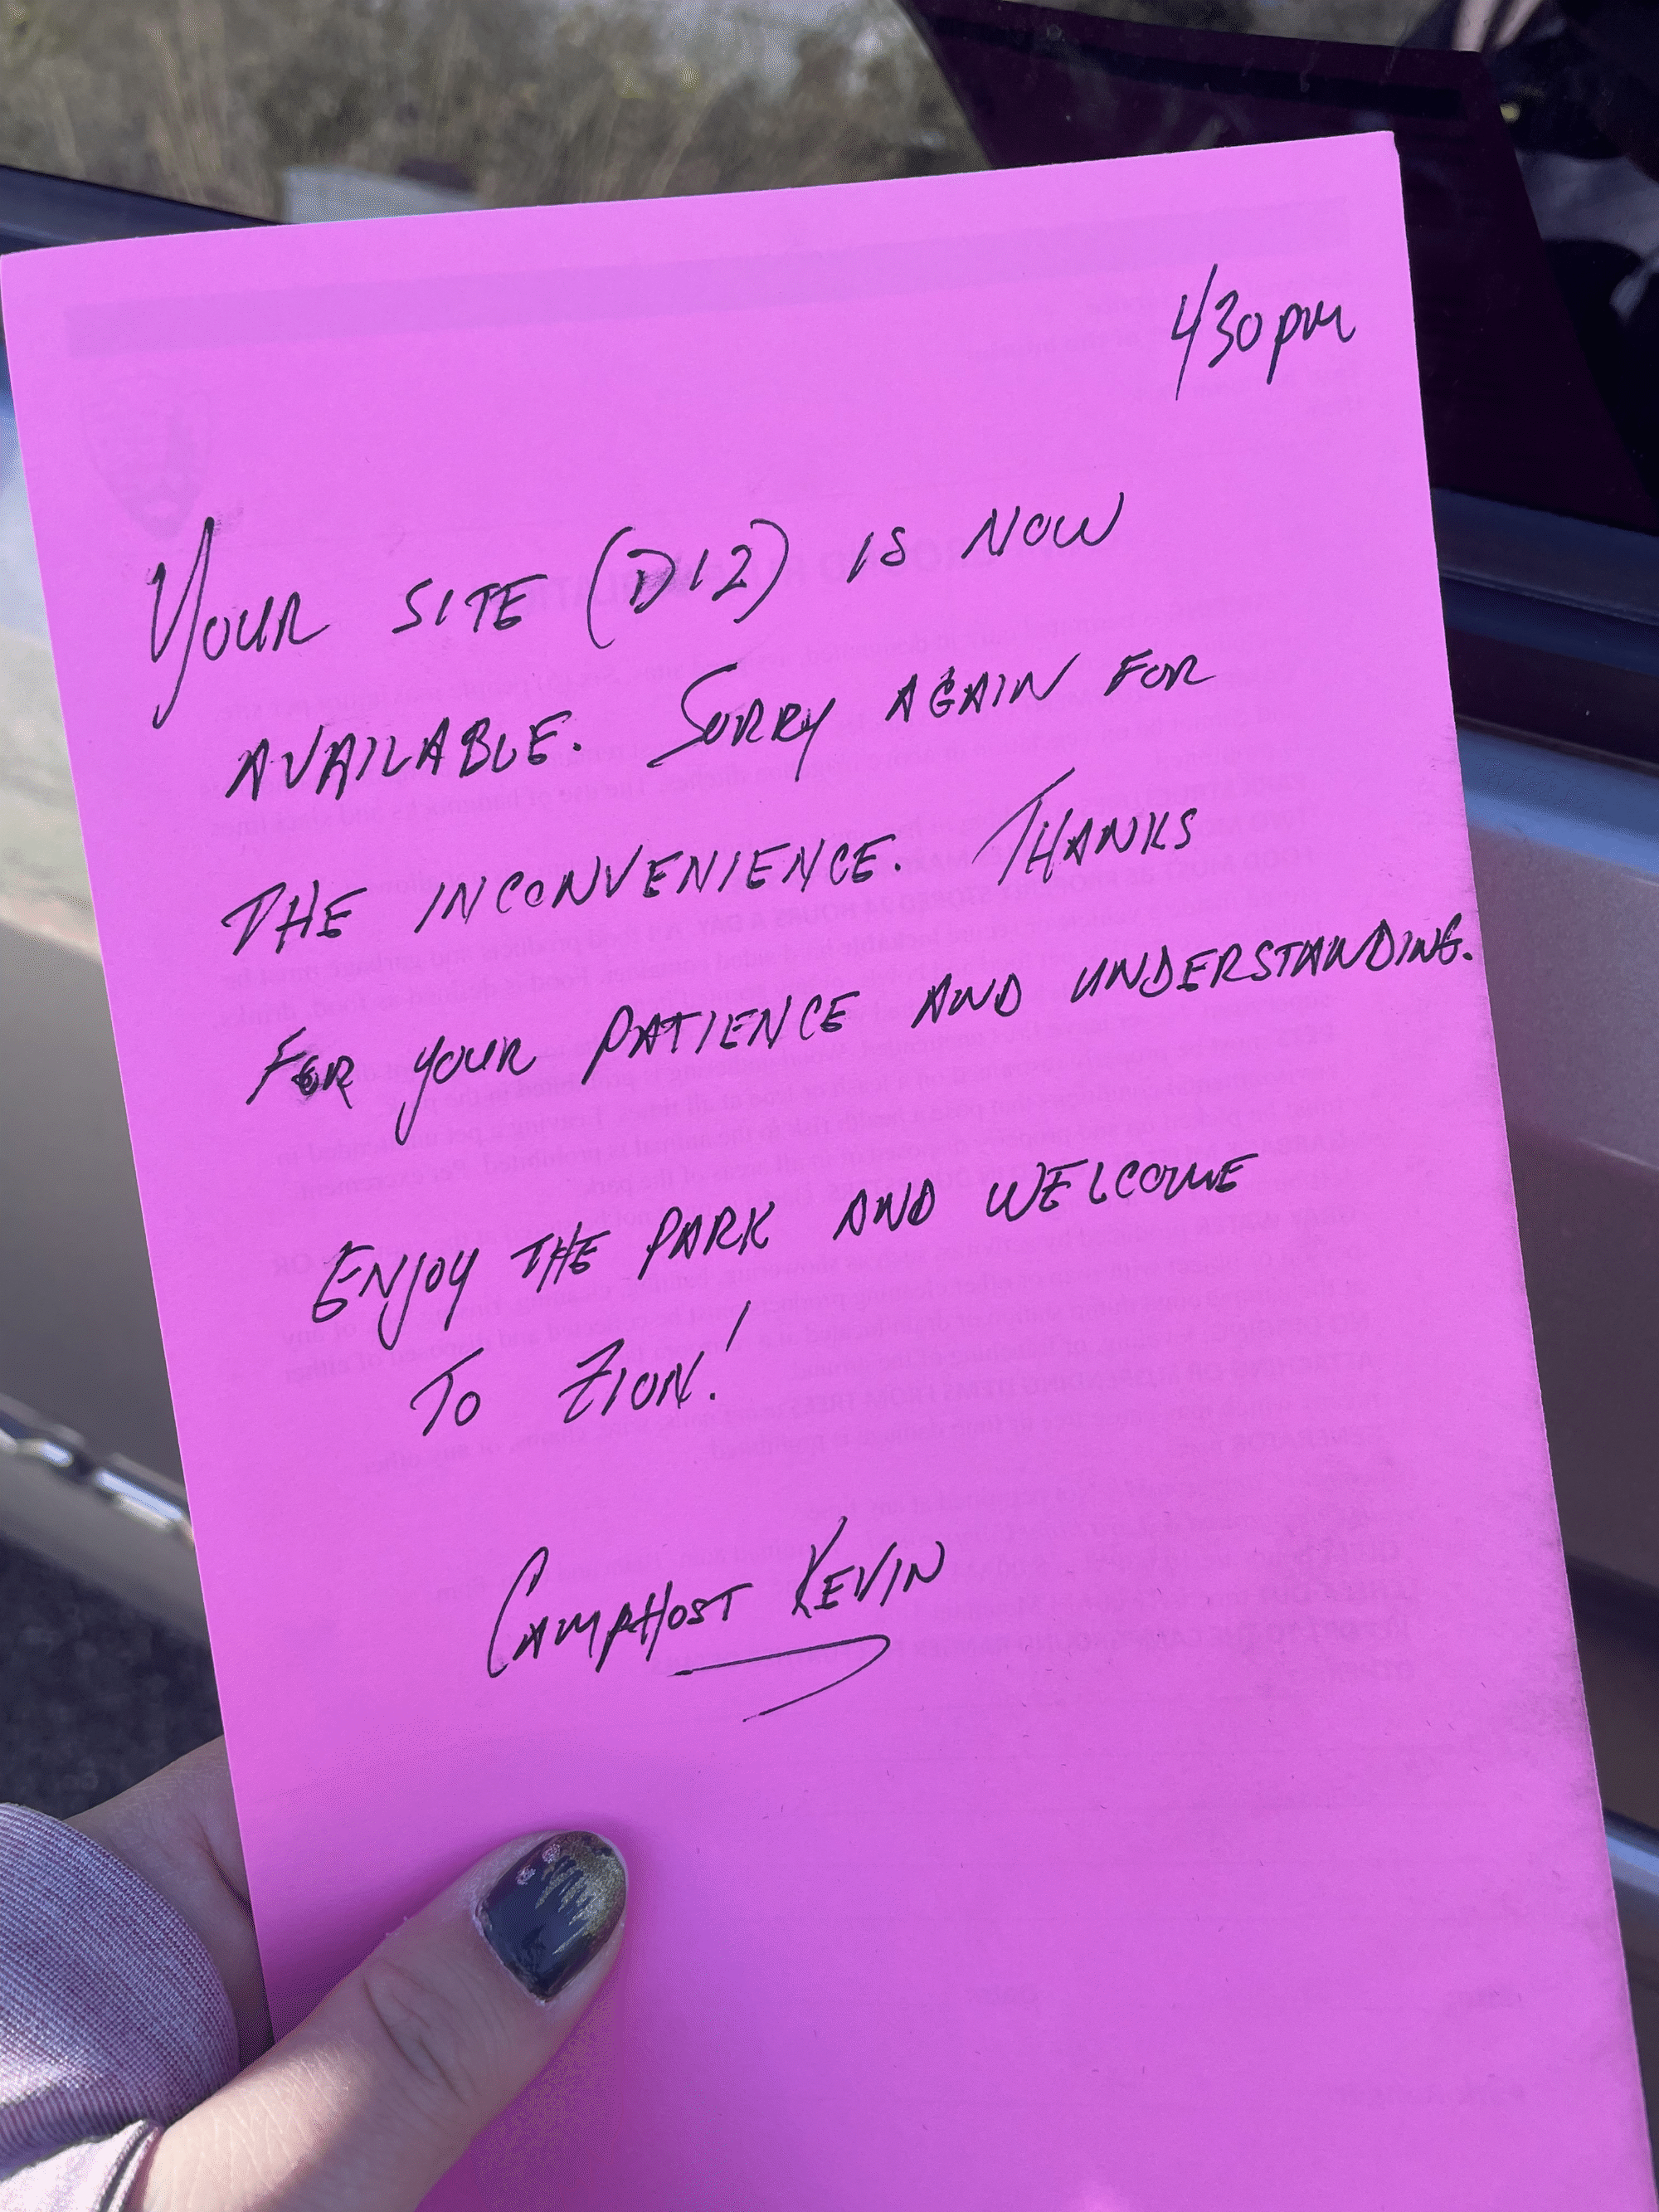 430pm
YOUR SITE (D12) IS NOW
AVAILABLE. SORRY AGAIN FOR
THE INCONVENIENCE. THANKS
FOR YOUR PATIENCE AND UNDERSTANDING.
ENJOY THE PARK AND WELCOME
TO ZION!
CAMPHOST KEVIN